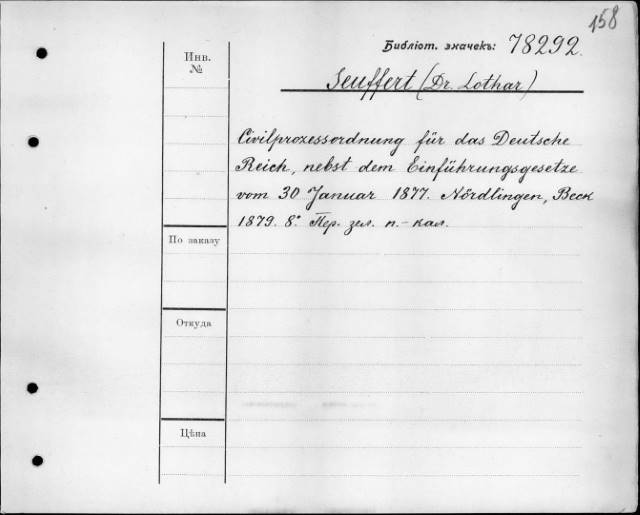 158
Библіот. значекъ: 78292.
Инв.
№
Seuffert (Dr. Lothar)
Civilprozessordnung für das Deutsche
Reich, nebst dem Einführungsgesetze
vom 30 Januar 1877. Nördlingen, Beck
1879. 8º Пер. зел. п.-кал.
По заказу
Откуда
Цѣна